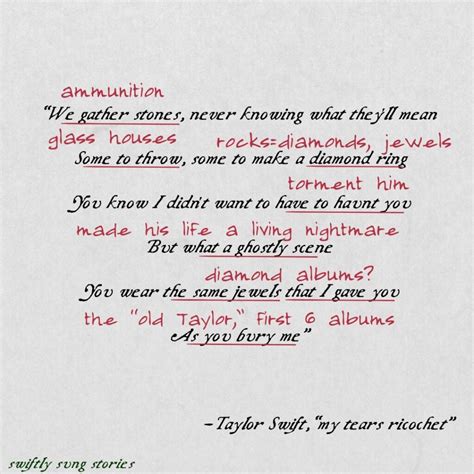 ammunition
"We gather stones, never knowing what they'll mean
glass houses rocks=diamonds, jewels
Some to throw, some to make a diamond ring
torment him
You know I didn't want to have to haunt you
made his life a living nightmare
But what a ghostly scene
diamond albums?
You wear the same jewels that I gave you
the "old Taylor," first 6 albums
As you bury me"
-Taylor Swift, "my tears ricochet"
swiftly sung stories